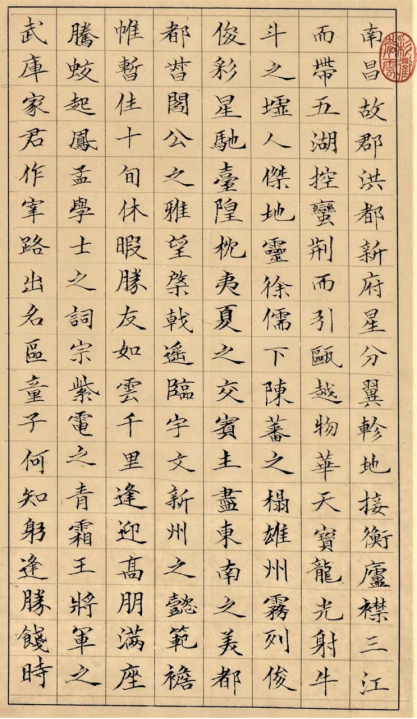 南昌故郡洪都新府星分翼軫地接衡廬襟三江
而帶五湖控蠻荊而引甌越物華天寶龍光射牛
斗之墟人傑地靈徐儒下陳蕃之榻雄州霧列俊
俊彩星馳臺隍枕夷夏之交賓主盡東南之美都
都督閻公之雅望棨戟遙臨宇文新州之懿範襜
帷暫住十旬休暇勝友如雲千里逢迎高朋滿座
騰蛟起鳳孟學士之詞宗紫電之青霜王將軍之
武庫家君作宰路出名區童子何知躬逢勝餞時